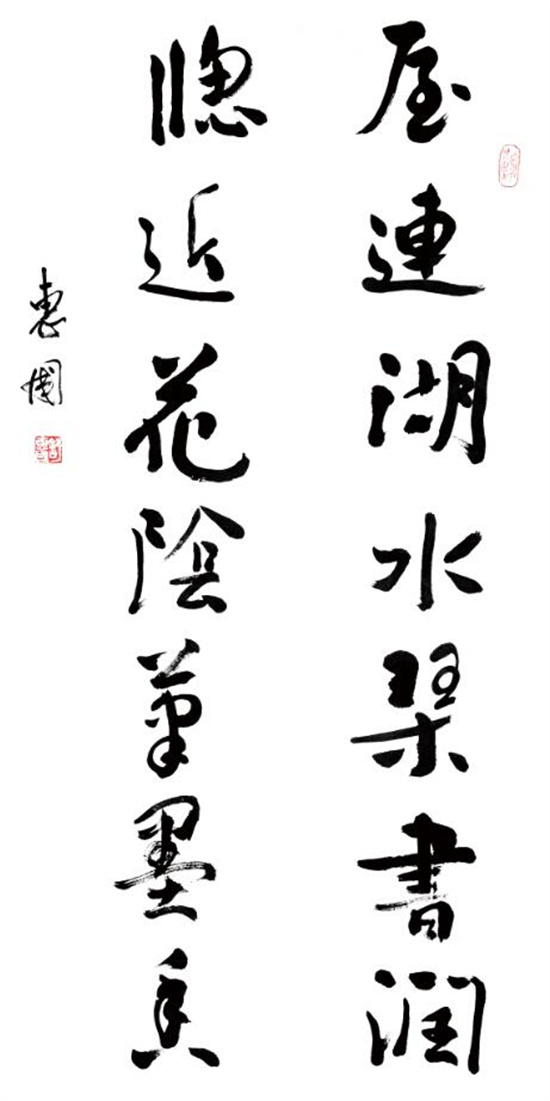 屋連湖水琹書潤
牕近花陰筆墨香
惠國